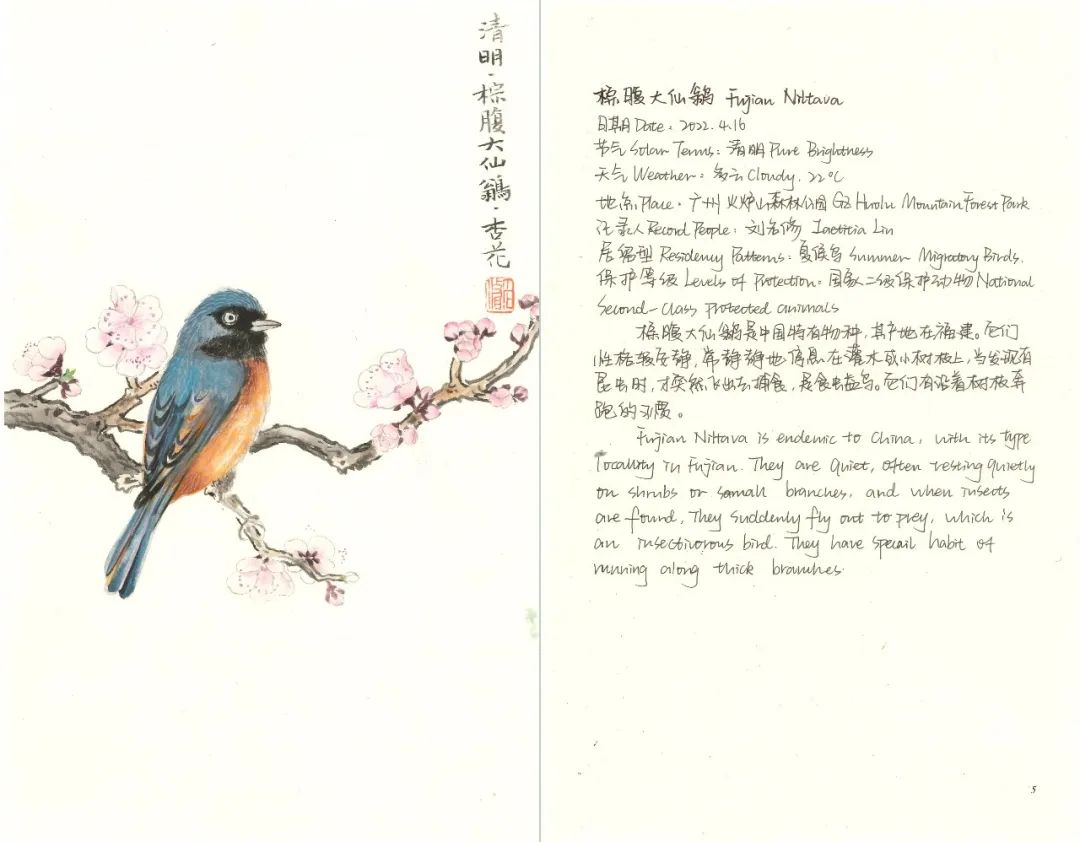 清明·棕腹大仙鶲·杏花
棕腹大仙鶲 Fujian Niltava
日期 Date: 2022.4.16
节气 Solar Terms: 清明 Pure Brightness
天气 Weather: 多云 Cloudy, 22℃
地点 Place: 广州火炉山森林公园 GZ Huolu Mountain Forest Park
记录人 Record People: 刘 Laetitia Lin
居留型 Residency Patterns: 夏候鸟 Summer Migratory Birds.
保护等级 Levels of Protection: 国家二级保护动物 National
Second-class protected animals
棕腹大仙鶲是中国特有物种,其产地在福建。它们
性格较安静,常静静地停息在灌木或小树枝上,当发现有
昆虫时,才突然飞出去捕食,是食虫益鸟。它们有沿着树枝奔
跑的习惯。
Fujian Niltava is endemic to China, with its type
locality in Fujian. They are Quiet, often resting quietly
on shrubs or small branches, and when insects
are found, They suddenly fly out to prey, which is
an insectivorous bird. They have specail habit of
running along thick branches.
5